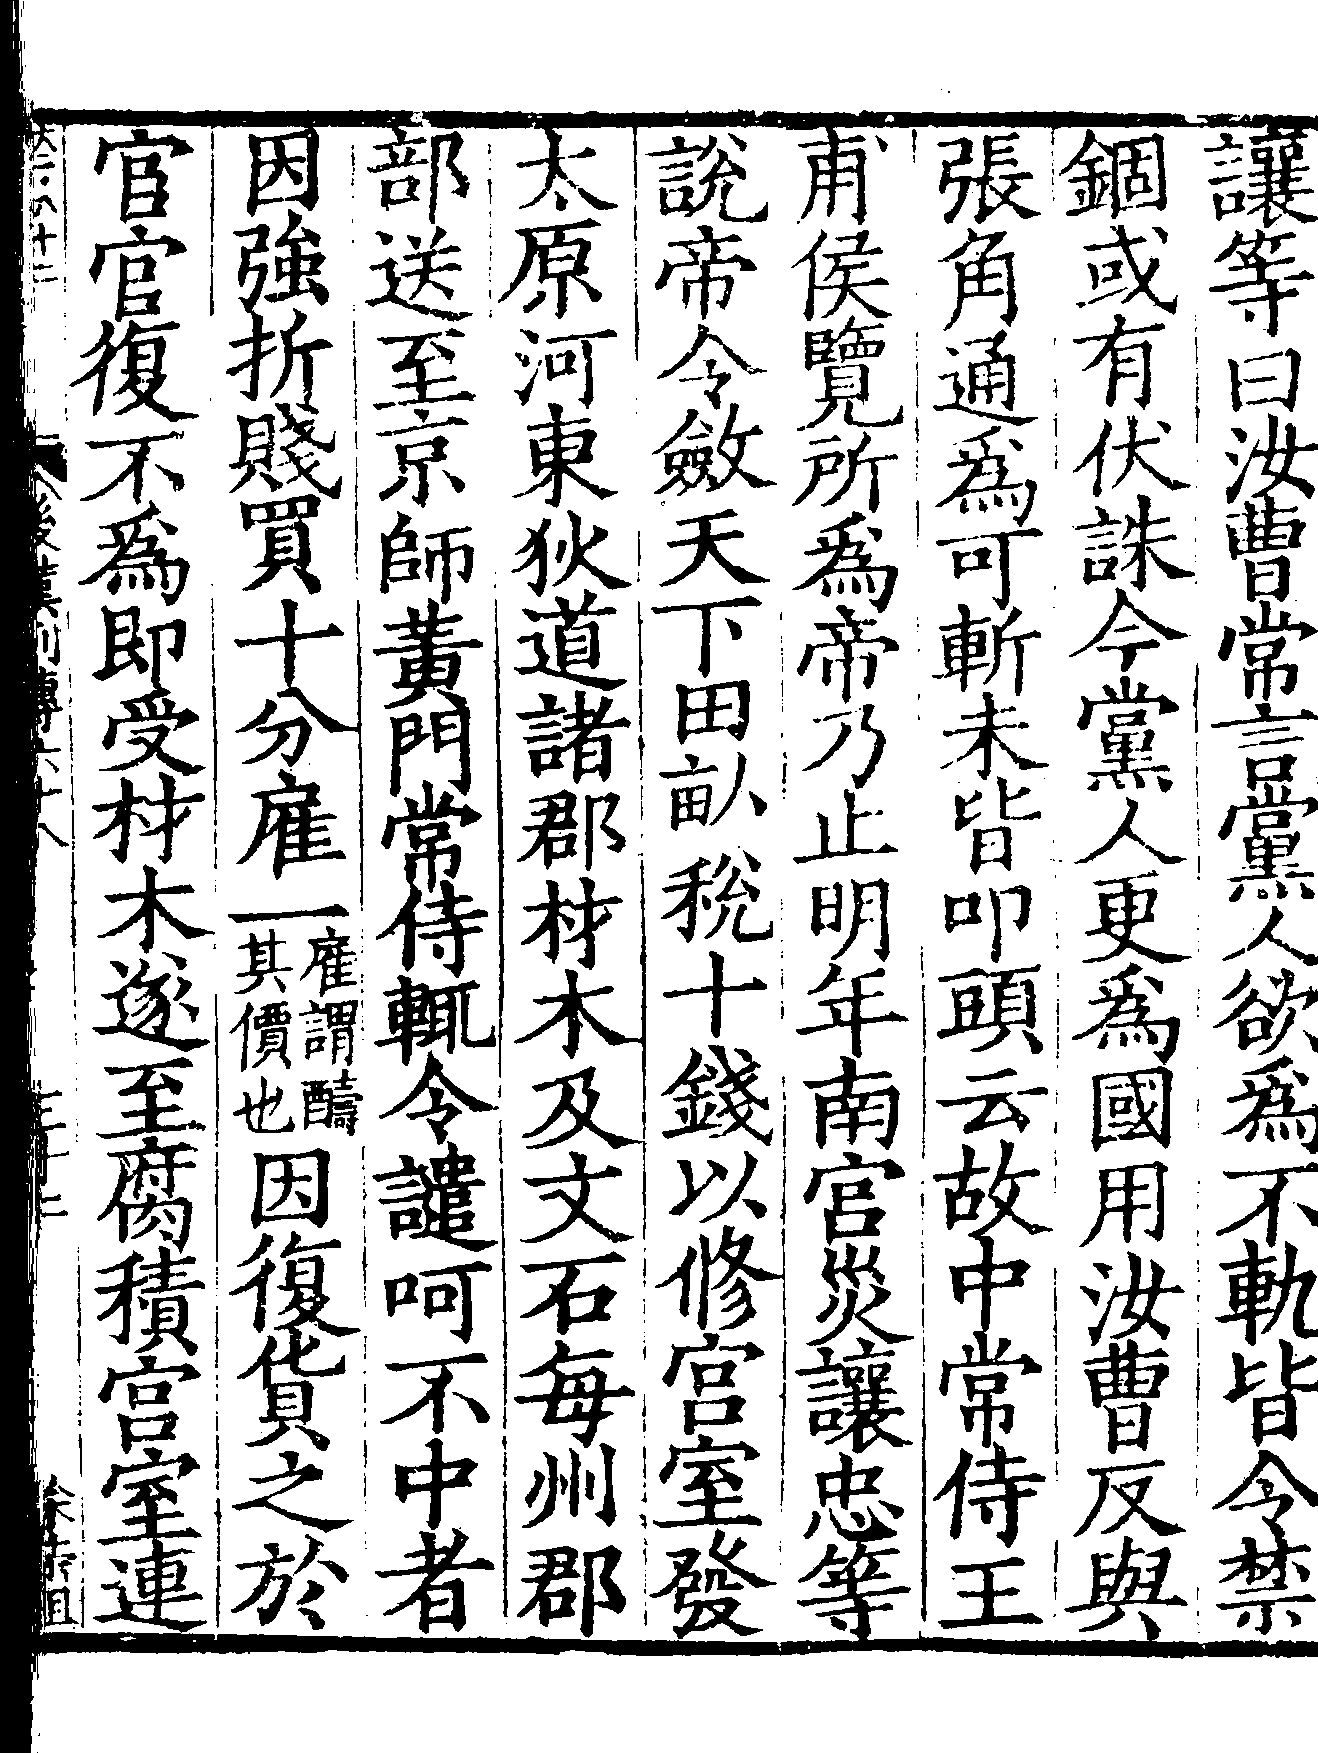 讓等曰汝曹常言黨人欲爲不軌皆令禁
錮或有伏誅今黨人更爲國用汝曹反與
張角通爲可斬未皆叩頭云故中常侍王
甫侯覽所爲帝乃止明年南宮災讓忠等
說帝令斂天下田畒稅十錢以修宮室發
太原河東狄道諸郡材木及文石每州郡
部送至京師黃門常侍輒令譴呵不中者
因強折賤買十分雇一雇謂醻其價也因復貨之於
宦官復不爲即受材木遂至腐積宮室連
後漢列傳六十八